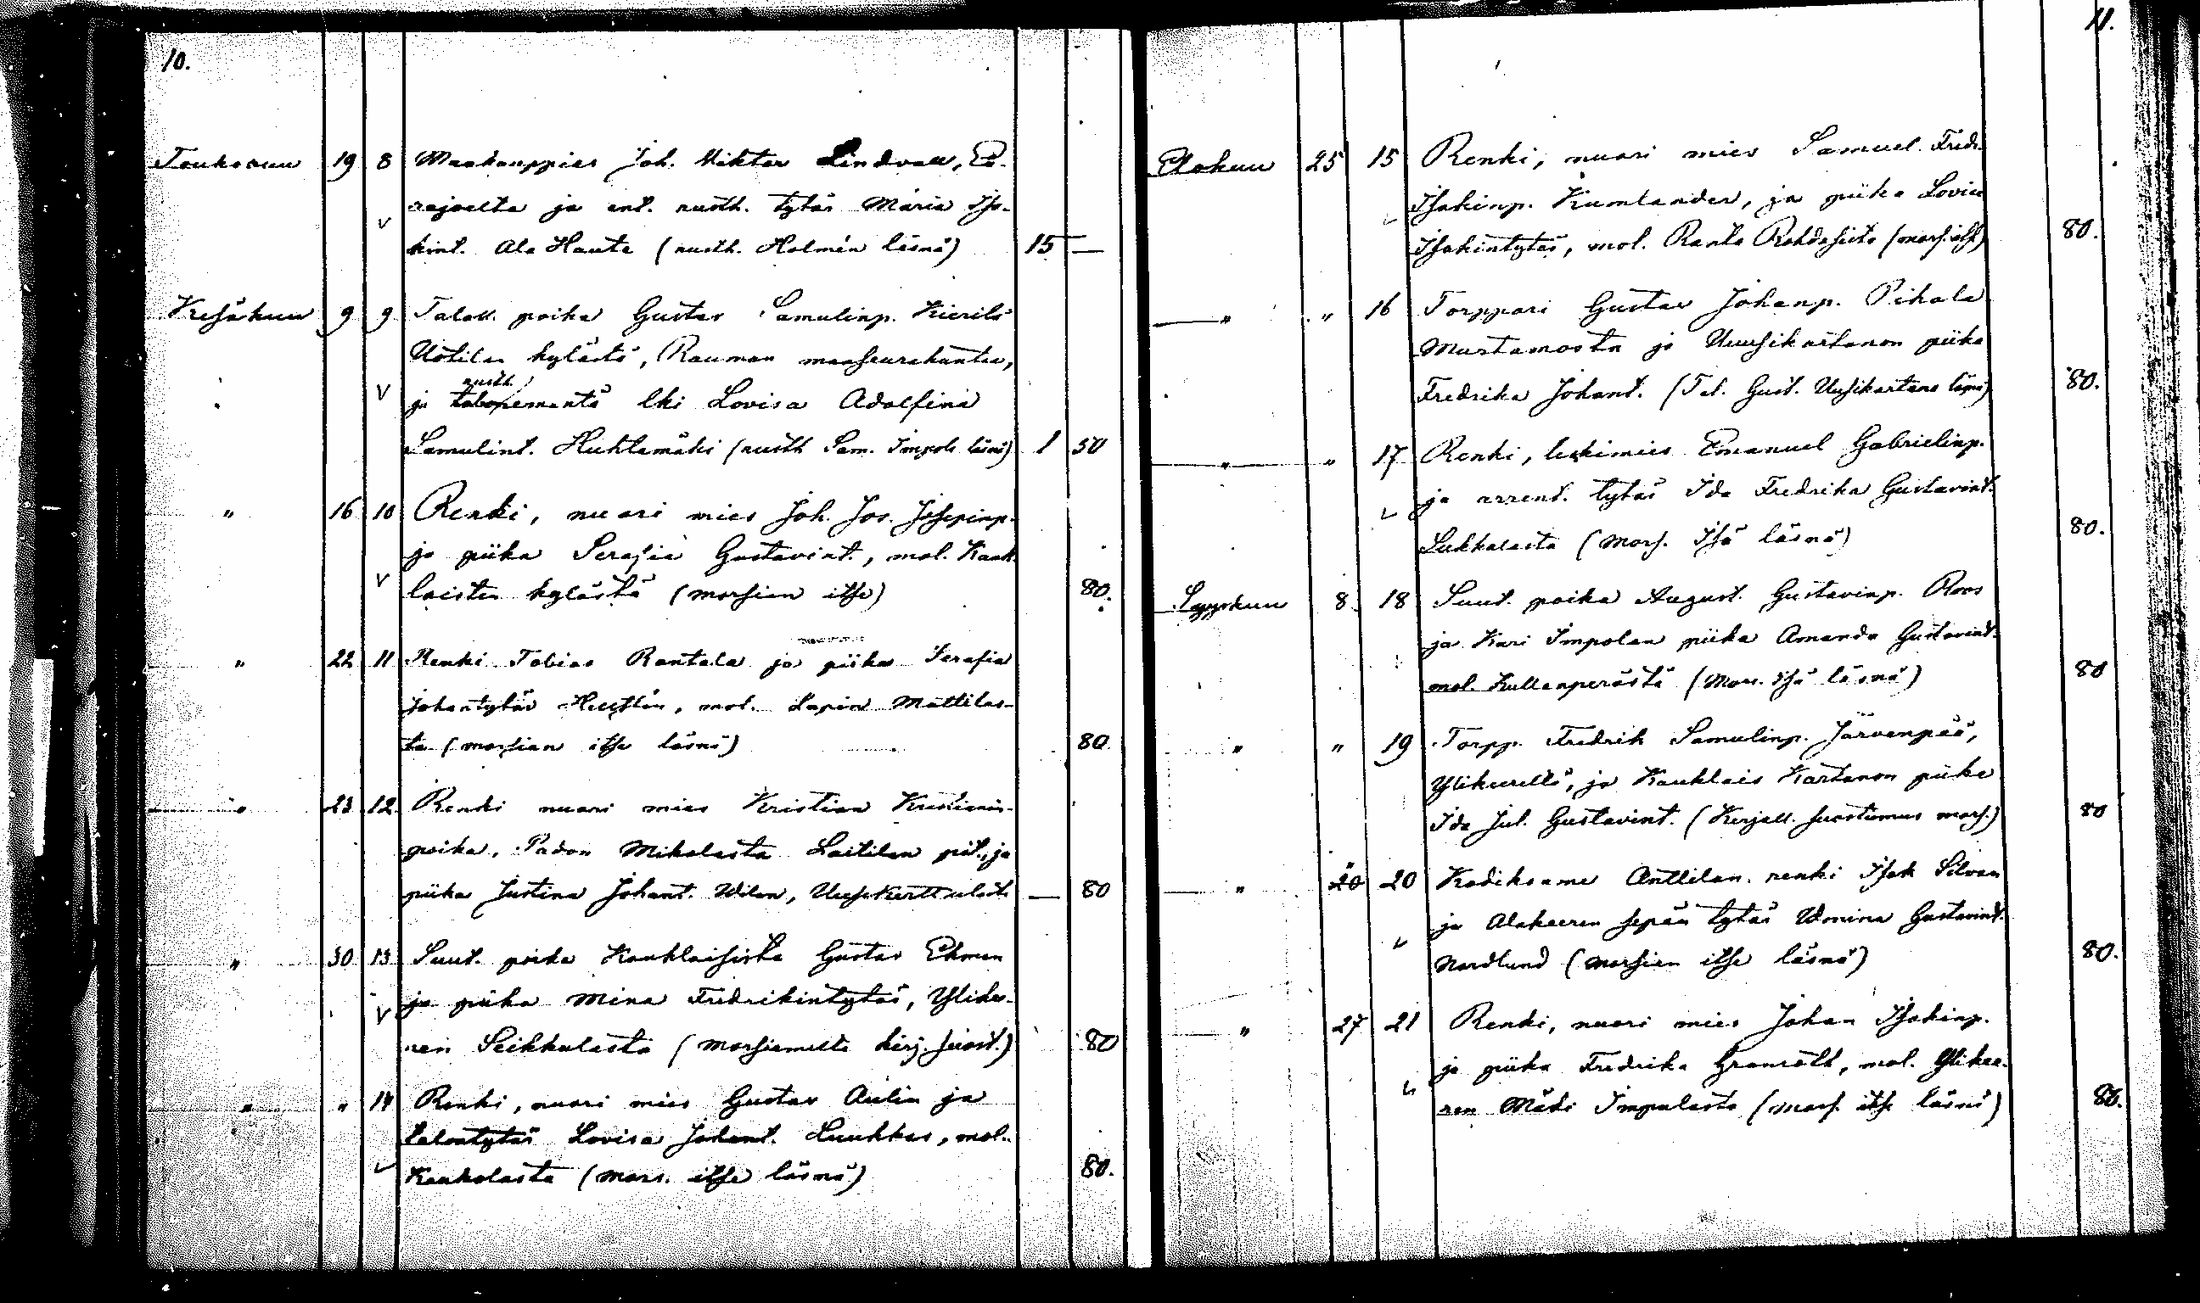 10.
Toukokuu 19 8 Maakauppias Joh. Viktor Lindvall, Eu-
rajoelta ja ent. rusth. tytär Maria Isa-
kint. Ala Hauta (rusth. Holmén läsnä) 15 —
Kesäkuu 9 9 Taloll. poika Gustav Samulinp. Kierilä
Uotilan kylästä, Rauman maaseurakuntaa,
rusth.
ja talonemäntä lki Lovisa Adolfina
Samulint. Huhtamäki (rusth Sam. Impola läsnä) 1 50
" 16 10 Renki, nuori mies Joh. Jos. Josepinp.
ja piika Serafia Gustavint., mol. Kauk-
laisten kylästä (morsian itse) 80.
" 22 11 Renki Tobias Rantala ja piika Serafia
Johantytär, mol. Lapin Mattilas-
ta (morsian itse läsnä) 80
" 23 12 Renki nuori mies Kristian Kristianin-
poika, Padon Mikolasta Laitilan pit., ja
piika Justina Johant. Wilen, — 80
" 30 13 Suut. poika Kauklaisista Gustav Ekman
ja piika Mina Fredrikintytär, Ylikee-
ren Seikkulasta (morsiamelta kirj. suost.) 80
" " 14 Renki, nuori mies Gustav Aulin ja
talontytär Lovisa Johant. Luukkas, mol.
Kaukolasta (mors. itse läsnä) 80.
11.
Elokuu 25 15 Renki, nuori mies Samuel Fredr.
Isakinp. Kumlander, ja piika Lovisa
Isakintytär, mol. Ranta Rohdaisista (mors. itse) 80.
" " 16 Torppari Gustav Johanp. Pihala
Mustamosta ja Uusikartanon piika
Fredrika Johant. (Tal. Gust. Uusikartano läsnä) 80.
" " 17 Renki, leskimies Emanuel Gabrielinp.
ja arrent. tytär Ida Fredrika Gustavint.
Sukkalasta (Mors. Isä läsnä) 80.
Syyskuu 8. 18 Suut. poika August. Gustavinp. Roos
ja Kari Impolan piika Amanda Gustavint.
mol. Kullanperästä (Mors. Isä läsnä) 80
" " 19 Torpp. Fredrik Samulinp. Järvenpää,
Ylikeereltä, ja Kauklais Kartanon piika
Ida Jul. Gustavint. (Kirjall. suostumus mors.) 80
" 20 20 Kodiksame Anttilan renki Isak Silvan
ja Alakeeren sepän tytär Vomina Gustavint.
Nordlund (morsian itse läsnä) 80.
" 27 21 Renki, nuori mies Johan Isakinp.
ja piika Fredrika Granroth, mol. Ylikee-
ren Mädi Impolasta (mors. itse läsnä) 80.